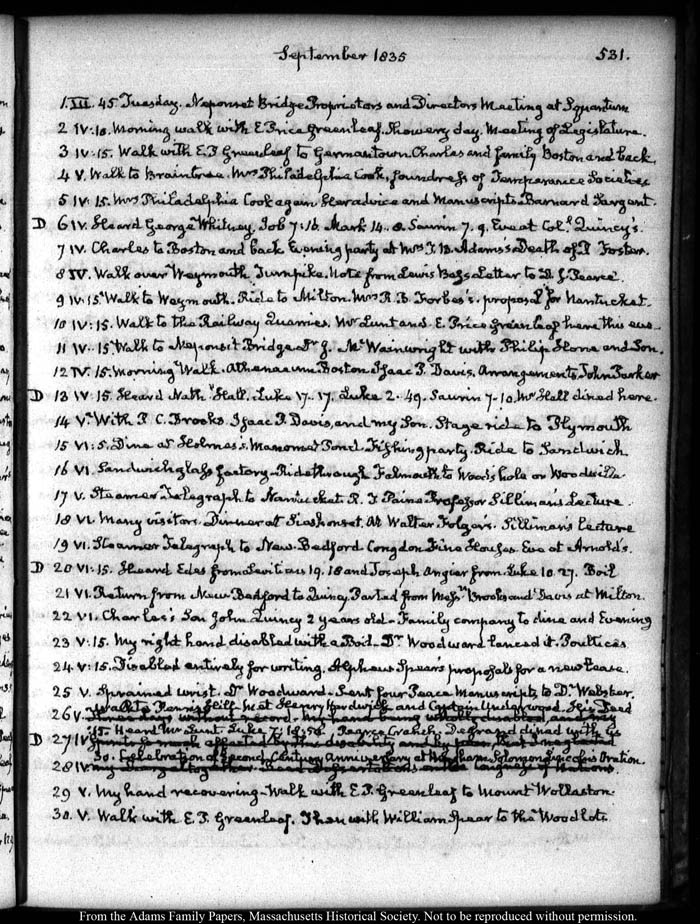 September 1835 531.
1. III. 45 Tuesday. Neponset Bridge Proprietors and Directors Meeting at Squantum
2 IV:10. Morning walk with E Price Greenleaf. Showery day. Meeting of Legislature.
3 IV:15. Walk with E. P. Greenleaf to Germantown Charles and family Boston and back.
4 V. Walk to Braintree. Mrs Philadelphia Cook, foundress of Temperance Societies
5 IV:15. Mrs Philadelphia Cook again. Her advice and Manuscripts. Barnard Sargent.
D 6 IV. Heard George Whitney, Job 7:16. Mark 14. 8. Saurin 7. 9. Eve at Col. Quincy's.
7 IV. Charles to Boston and back Evening party at Mrs T. B. Adams's Death of Foster.
8 IV. Walk over Weymouth Turnpike. Note from Lewis Bass Letter to D. J. Pearce.
9 IV:15 Walk to Weymouth. Ride to Milton. Mrs R. B. Forbes's. proposal for Nantucket.
10 IV:15. Walk to the Railway Quarries. Mr Lunt and E. Price Greenleaf here this eve.
11 IV..15 Walk to Neponsit Bridge Dr J. M. Wainwright with Philip Hone and Son.
12 IV.15. Morning Walk. Athenaeum Boston Isaac P. Davis, Arrangements John Parker
D 13 IV:15. Heard Nath. Hall. Luke 17. 17. Luke 2. 49. Saurin 7-10. Mr Hall dined here.
14 V. With P. C. Brooks, Isaac P. Davis, and my Son. Stage ride to Plymouth
15 VI:5. Dine at Holmes's. Manomet Pond. Fishing party. Ride to Sandwich
16 VI. Sandwich glass factory - Ride through Falmouth to Woods hole or Woodville
17 V. Steamer Telegraph to Nantucket R. T Paine Professor Silliman's Lecture.
18 VI. Many visitors. Dinner at Siasconset. At Walter Folger's. Silliman's lecture
19 VI. Steamer Telegraph to New-Bedford Congdon Fine Houses. Eve at Arnold's.
D 20 VI:15. Heard Edes from Leviticus 19. 18 and Joseph Angier from Luke 10. 27. Boil
21 VI. Return from New Bedford to Quincy. Parted from Messrs Brooks and Davis at Milton.
22 VI. Charles's Son John Quincy 2 years old - Family company to dine and Evening
23 V:15. My right hand disabled with a Boil - Dr Woodward lanced it. Poultices.
24 V:15. Disabled entirely for writing. Alpheus Spear's proposals for a new lease.
25 V. Sprained wrist. Dr Woodward - Sent four Peace Manuscripts to D. Webster.
26 V. Walk to Penn's Hill met Henry Hardwick and Captain Underwood. His Deed
D 27 IV:15. Heard Mr Lunt. Luke 7:18. Pearce Cranch, Degrand dined with us
28 IV 30. Celebration of Second Century Anniversary at Oration.
29 V. My hand recovering - Walk with E. P. Greenleaf to Mount Wollaston.
30. V. Walk with E. P. Greenleaf. Then with William Spear to the Woodlots
From the Adams Family Papers, Massachusetts Historical Society. Not to be reproduced without permission.